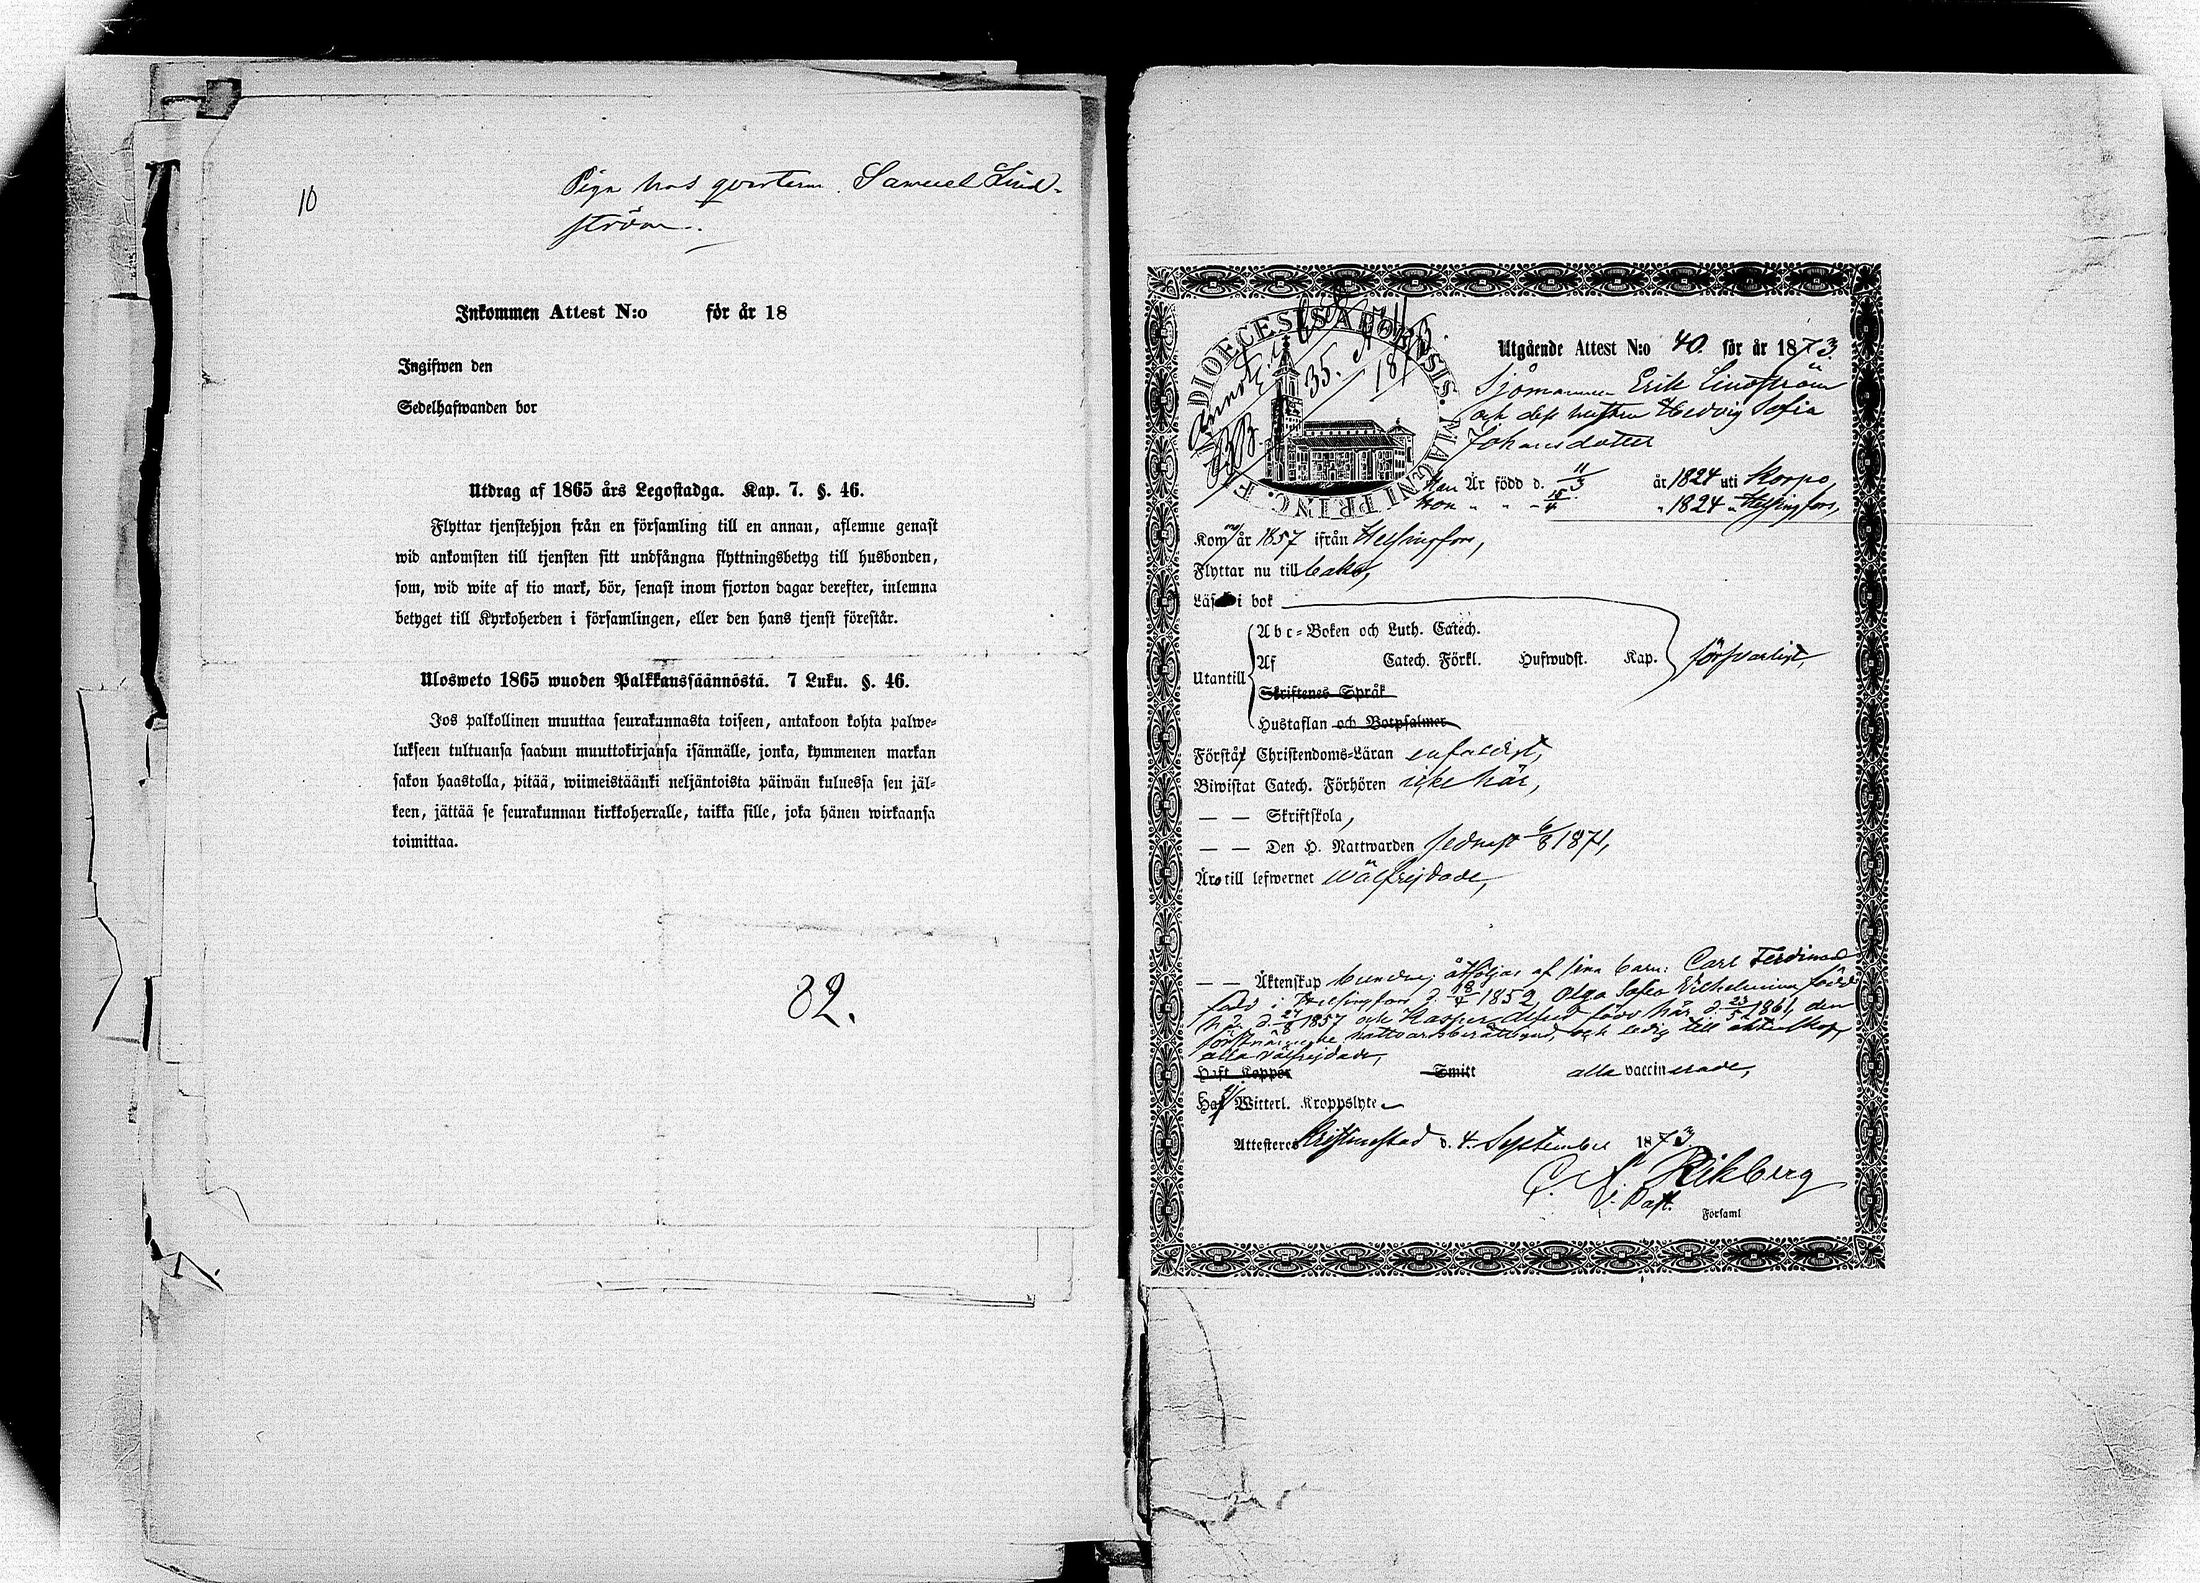 10
Piga hos qvarterm. Samuel Lind-
ström.
Inkommen Attest N:o för år 18
Ingifwen den
Sedelhafwanden bor
Utdrag af 1865 års Legostadga. Kap. 7. §. 46.
Flyttar tjenstehjon från en församling till en annan, aflemne genast
wid ankomsten till tjensten sitt undfångna flyttningsbetyg till husbonden,
som, wid wite af tio mark, bör, senast inom fjorton dagar derefter, inlemna
betyget till Kyrkoherden i församlingen, eller den hans tjenst förestår.
Ulosweto 1865 wuoden Palkkaussäännöstä. 7 Luku. §. 46.
Jos palkollinen muuttaa seurakunnasta toiseen, antakoon kohta palwe-
lukseen tultuansa saadun muuttokirjansa isännälle, jonka, kymmenen markan
sakon haastolla, pitää, wiimeistäänki neljäntoista päiwän kuluessa sen jäl-
keen, jättää se seurakunnan kirkkoherralle, taikka sille, joka hänen wirkaansa
toimittaa.
32.
DIOECESIS ABOENSIS. MAGNI PRINC. F.
35.
Utgående Attest N:o 40. för år 1873.
Sjömannen Erik Lindström
och dess hustru Hedvig Sofia
Johansdotter
Han Är född d. 11/3 år 1824 uti Korpo,
Hon " " - 15/4 " 1824 " Helsingfors,
Kom år 1857 ifrån Helsingfors,
Flyttar nu till baka,
Läs i bok
Abc-Boken och Luth. Catech.
Utantill Af Catech. Förkl. Hufwudst. Kap. försvarligt,
Skriftenes Språk
Hustaflan och Botpsalmer
Förstå Christendoms-Läran enfaldigt,
Biwistat Catech. Förhören icke här,
— — Skriftskola,
— — Den H. Nattwarden sednast 6/8 1871,
Äro till lefwernet wälfrejdade,
— — Äktenskap bundne; åtföljas af sina barn: Carl Ferdinand
född i Helsingfors d. 18/4 1852, Olga Sofia Wilhelmina född
d. 24/8 1857 och Kasper född här d. 23/5 1861, den
förstnämnde nattvardsberättigad, och ledig till äktenskap,
alla välfrejdade,
Haft Koppor Smitt alla vaccinerade,
Haf Witterl. Kroppslyte
Attesteres Kristinestad d. 4 September 1873.
Rikberg
v. Past.
Församl